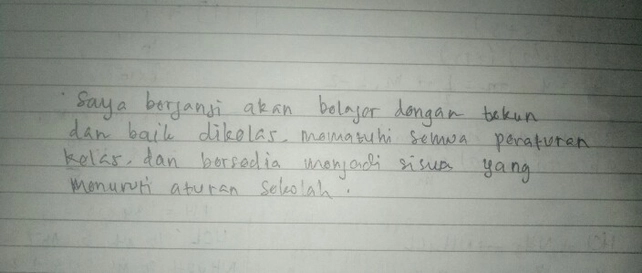 Saya berjanji akan belajar dengan tekun
dan baik dikelas. mematuhi semua peraturan
kelas, dan bersedia menjadi siswa yang
menuruti aturan sekolah.